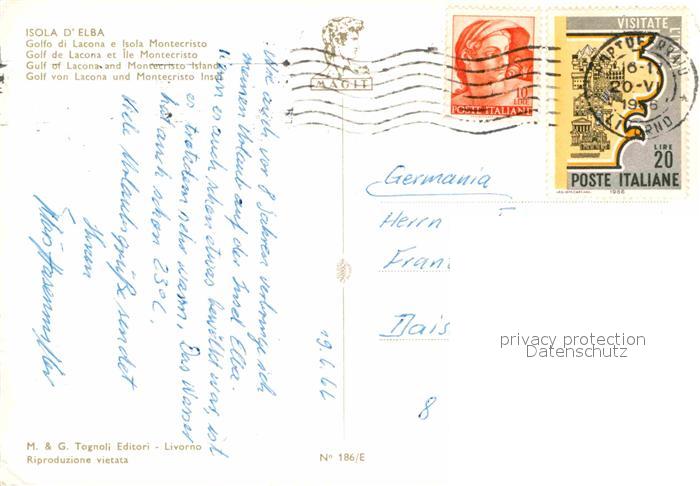 ISOLA D' ELBA
Golfo di Lacona e Isola Montecristo
Golfe de Lacona et Île Montecristo
Gulf of Lacona and Montecristo Island
Golf von Lacona und Montecristo Insel
MAGIT
10
LIRE
POSTE ITALIANE
VISITATE
16-1
20-VI
1966
LIRE
20
POSTE ITALIANE
1966
19.6.66
Wie auch vor 8 Jahren verbringe ich
meinen Urlaub auf der Insel Elba.
Wenn es auch schon etwas bewölkt war, ist
es trotzdem sehr warm. Das Wasser
hat auch schon 23°C.
Viele Urlaubsgrüße sendet
Ihnen
Germania
Herrn
Fran
Dais
8
privacy protection
Datenschutz
M. & G. Tognoli Editori - Livorno
Riproduzione vietata
N° 186/E